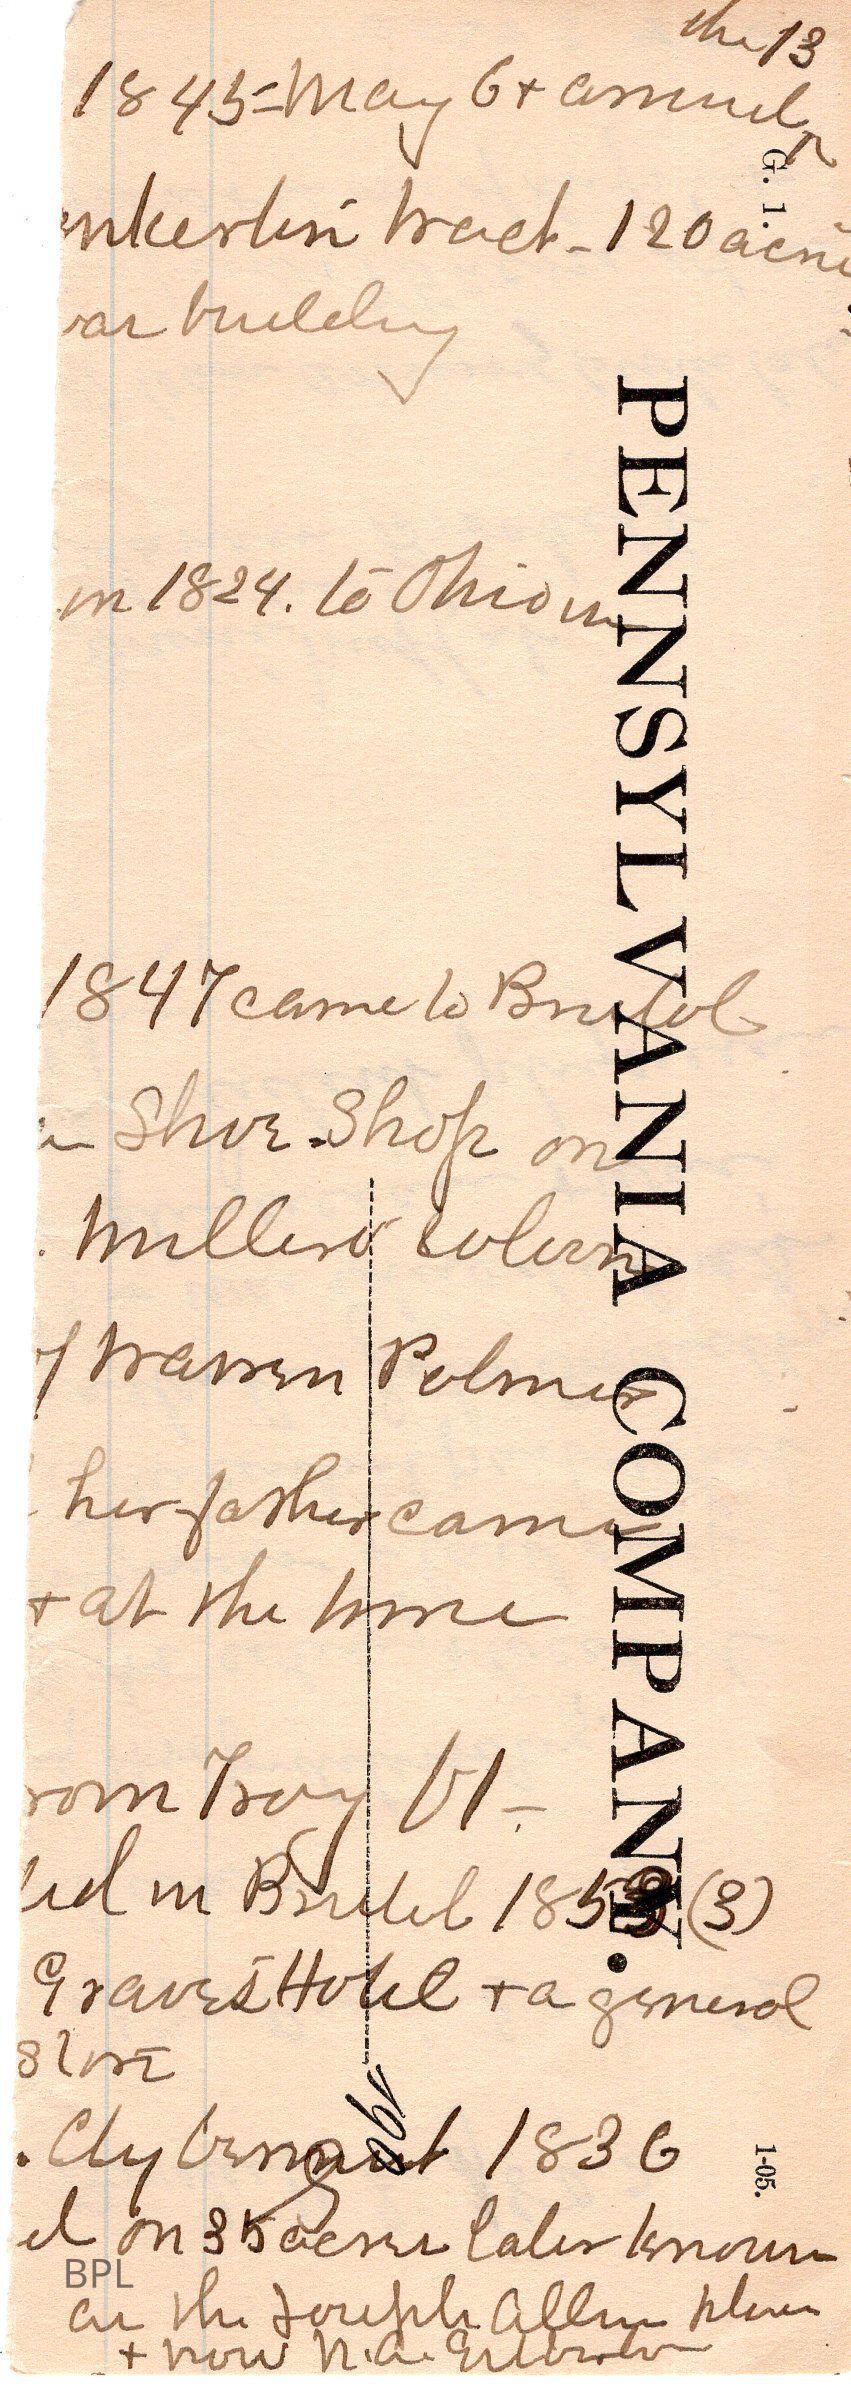 the 13
1845=May 6+
G. 1.
tract - 120
building
in 1824. to Ohio in
1847 came to Bristol
Shoe Shop on
of Warren Palmer
her father came
+ at the time
rom Troy Vt -
in Bristol 185 (3)
Graves Hotel + a general
Store
1836
on 35 acres later known
as the Joseph Allen place
+ now
PENNSYLVANIA COMPANY.
190
1-05.
BPL